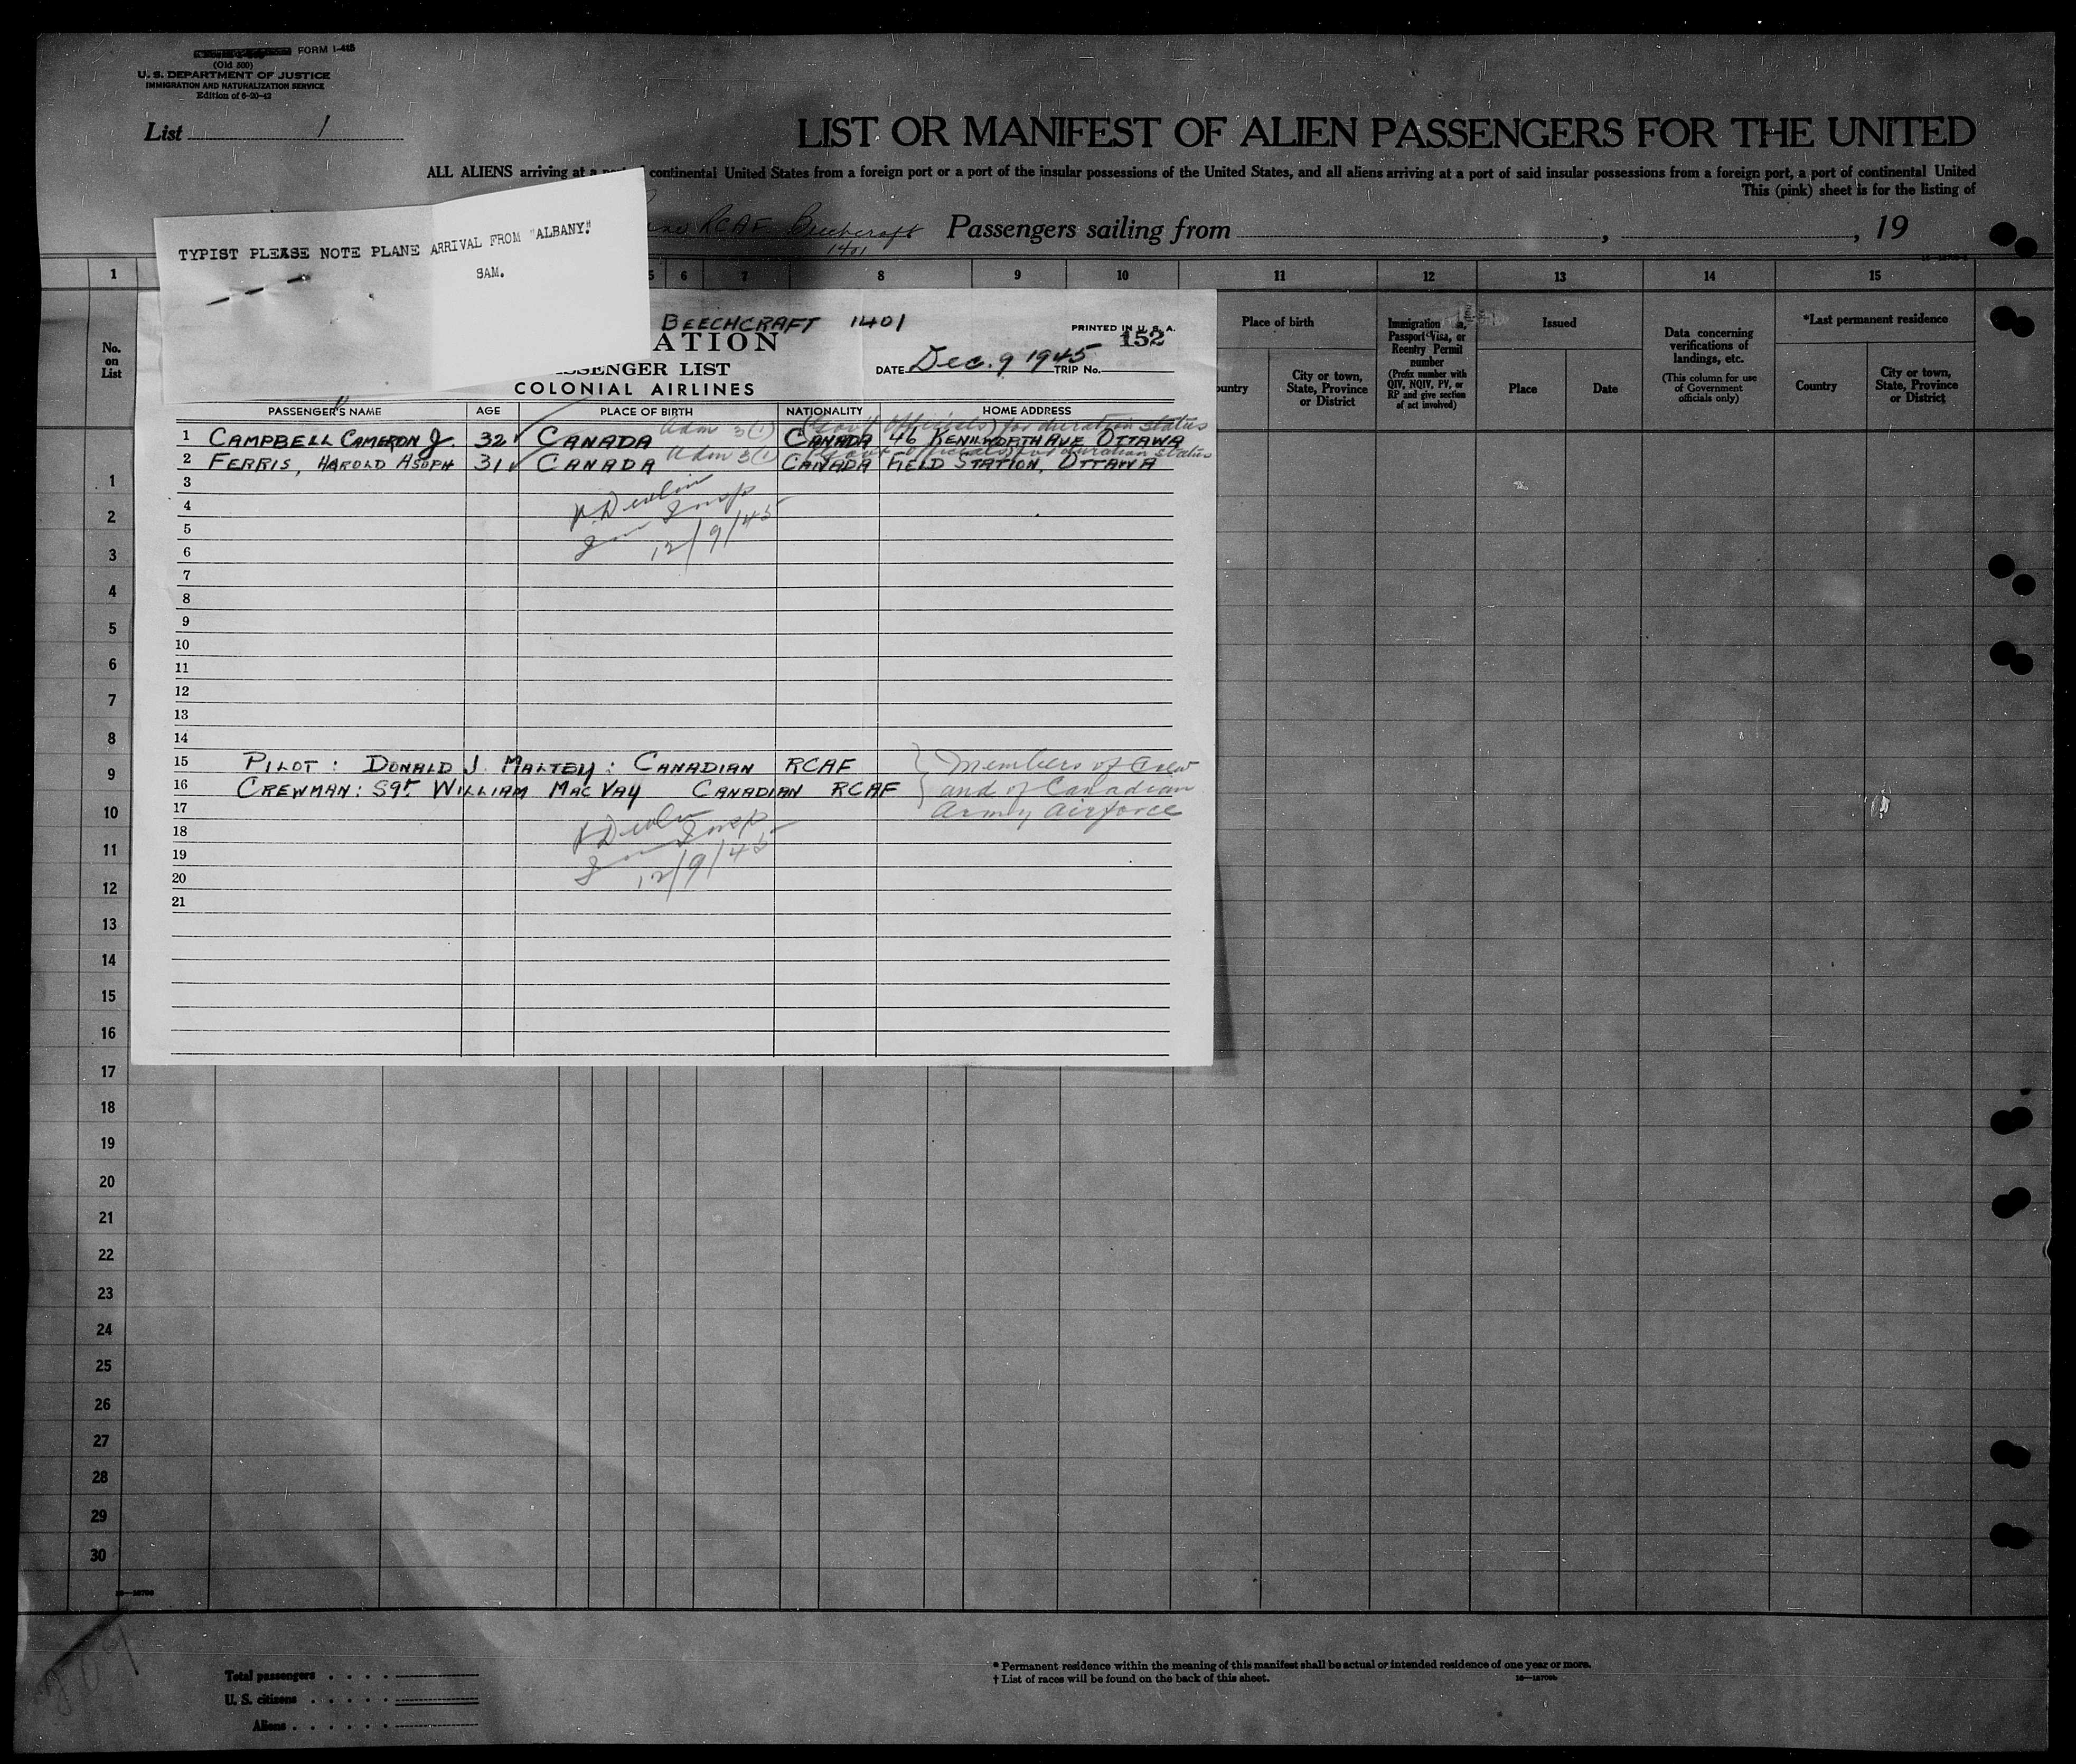 FORM I-415
(Old 500)
U. S. DEPARTMENT OF JUSTICE
IMMIGRATION AND NATURALIZATION SERVICE
Edition of 6-20-42
List 1
LIST OR MANIFEST OF ALIEN PASSENGERS FOR THE UNITED
ALL ALIENS arriving at a port of continental United States from a foreign port or a port of the insular possessions of the United States, and all aliens arriving at a port of said insular possessions from a foreign port, a port of continental United
This (pink) sheet is for the listing of
RCAF Beechcraft Passengers sailing from , , 19
1401
TYPIST PLEASE NOTE PLANE ARRIVAL FROM "ALBANY."
SAM.
1 5 6 7 8 9 10 11 12 13 14 15
No. on List
Place of birth
ountry
City or town, State, Province or District
Passport Visa, or Reentry Permit number
(Prefix number with QIV, NQIV, PV, or RP and give section of act involved)
Issued
Place
Date
Data concerning verifications of landings, etc.
(This column for use of Government officials only)
*Last permanent residence
Country
City or town, State, Province or District
BEECHCRAFT 1401
PRINTED IN U. S. A.
152
ATION
SENGER LIST
COLONIAL AIRLINES
DATE Dec. 9 1945 TRIP No.
PASSENGER'S NAME AGE PLACE OF BIRTH NATIONALITY HOME ADDRESS
Adm 3(1) (Gov't Officials) for duration status
1 CAMPBELL CAMERON J. 32 CANADA CANADA 46 KENILWORTH AVE OTTAWA
Adm 3(1) (Govt officials) for duration status
2 FERRIS, HAROLD ASOPH 31 CANADA CANADA FIELD STATION, OTTAWA
3
4
5
6
Devlin
Insp
12/9/45
7
8
9
10
11
12
13
14
15 PILOT: DONALD J. MALTBY: CANADIAN RCAF
16 CREWMAN: Sgt WILLIAM MACVAY CANADIAN RCAF
Members of Crew
and of Canadian
Army Airforce
17
18
19
20
21
Devlin
Insp
12/9/45
1
2
3
4
5
6
7
8
9
10
11
12
13
14
15
16
17
18
19
20
21
22
23
24
25
26
27
28
29
30
Total passengers
U. S. citizens
Aliens
* Permanent residence within the meaning of this manifest shall be actual or intended residence of one year or more.
† List of races will be found on the back of this sheet.